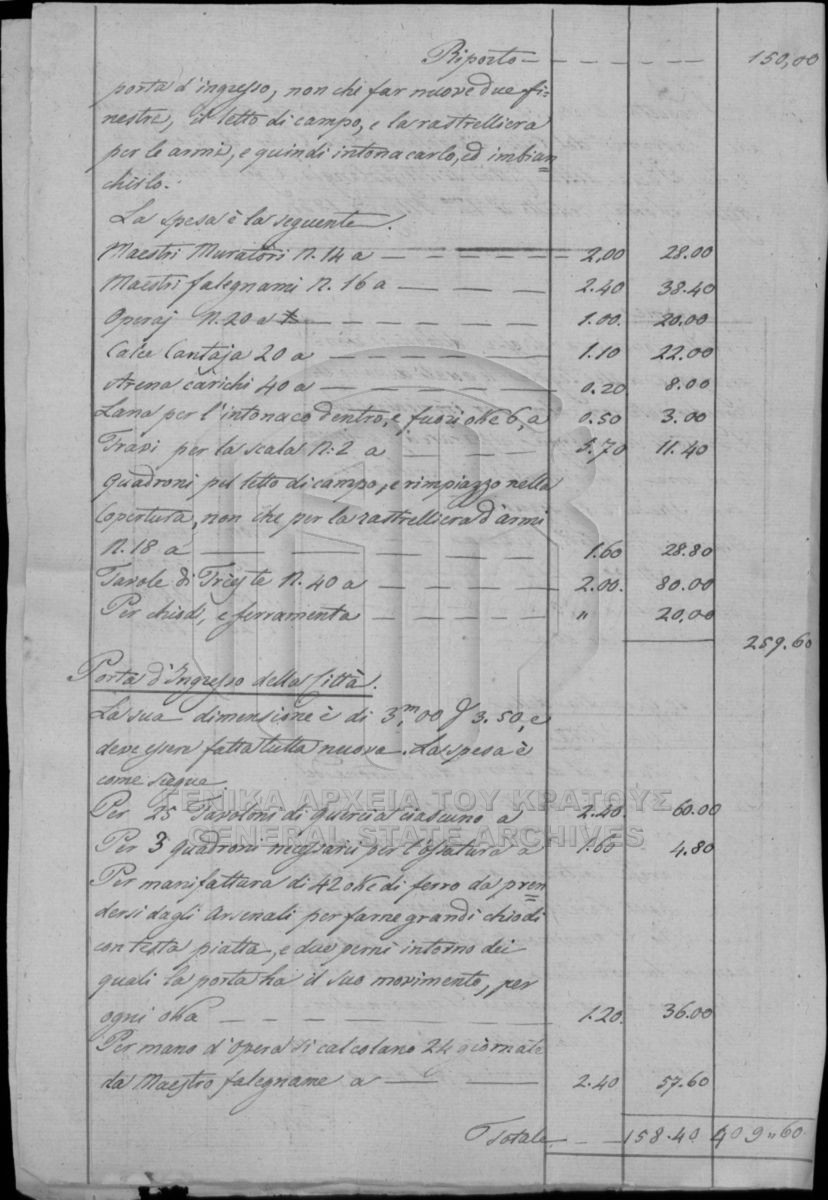 Riporto — — — — — — 150,00
porta d'ingresso, non che far nuove due fi=
nestre, il letto di campo, e la rastrelliera
per le armi, e quindi intonacarlo, ed imbian=
chirlo.
La spesa è la seguente.
Maestri Muratori N. 14 a — — — — 2,00 28.00
Maestri falegnami N. 16 a — — — 2.40 38.40
Operaj N. 20 a — — — — — 1.00. 20.00
Calce Cantaja 20 a — — — — 1.10 22.00
Arena carichi 40 a — — — — 0.20 8.00
Lana per l'intonaco dentro, e fuori oke 6, a 0.50 3.00
Travi per la scala N. 2 a — — — 5.70 11.40
Quadroni pel letto di campo, e rimpiazzo nella
Copertura, non che per la rastrelliera d'armi
N. 18 a — — — — — 1.60 28.80
Tavole di Trieste N. 40 a — — — 2.00. 80.00
Per chiodi, e ferramenta — — — " 20.00
259.60
Porta d'Ingresso della Città.
La sua dimensione è di 3,m00 3.50, e
deve essere fatta tutta nuova. La spesa è
come siegue
ΓΕΝΙΚΑ ΑΡΧΕΙΑ ΤΟΥ ΚΡΑΤΟΥΣ
Per 25 Tavoloni di quercia ciascuno a 2.40. 60.00
GENERAL STATE ARCHIVES
Per 3 quadroni necessarii per l'ossatura a 1.60 4.80
Per manifattura di 42 oke di ferro da pren=
dersi dagli Arsenali per farne grandi chiodi
con testa piatta, e due perni intorno dei
quali la porta ha il suo movimento, per
ogni oka — — — — — 1.20. 36.00
Per mano d'opera si calcolano 24 giornate
da Maestro falegname a — — — 2.40 57.60
Totale — — 158.40 409"60